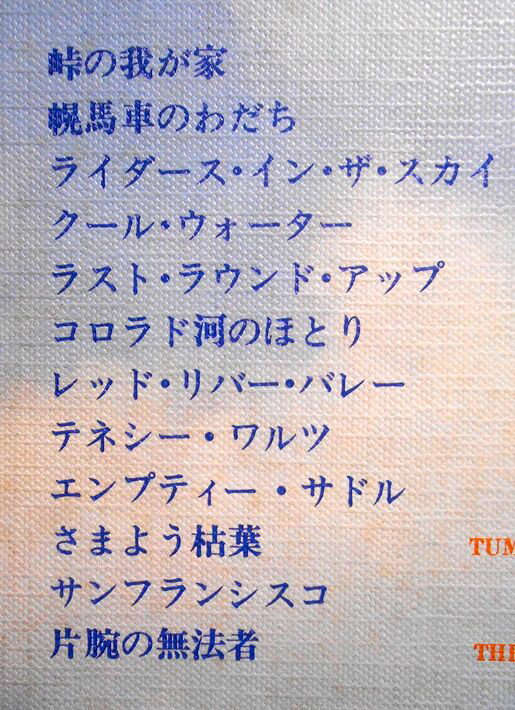 峠の我が家
幌馬車のわだち
ライダース・イン・ザ・スカイ
クール・ウォーター
ラスト・ラウンド・アップ
コロラド河のほとり
レッド・リバー・バレー
テネシー・ワルツ
エンプティー・サドル
さまよう枯葉
TUM
サンフランシスコ
片腕の無法者
THE